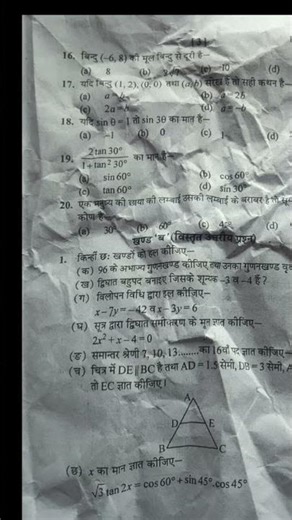 [3]
16. बिन्दु (-6, 8) की मूल बिन्दु से दूरी है—
(a) 8 (b) (c) -10 (d)
17. यदि बिन्दु (1, 2), (0, 0) तथा (a, b) संरेख हैं तो सही कथन है—
(a) a = b (b) = 2b
(c) 2a = (d) a = -b
18. यदि sin θ = 1 तो sin 3θ का मान है—
(a) -1 (b) 0 (c) 1 (d)
19. 2 tan 30° / 1 + tan² 30° का मान है—
(a) sin 60° (b) cos 60°
(c) tan 60° (d) sin 30°
20. एक मनुष्य की छाया की लम्बाई उसकी लम्बाई के बराबर है
कोण है—
(a) 30 (b) 60° (c) 45° (d)
खण्ड 'ब' (विस्तृत उत्तरीय प्रश्न)
1. किन्हीं छः खण्डों को हल कीजिए—
(क) 96 के अभाज्य गुणनखण्ड कीजिए तथा उनका गुणनखण्ड वृक्ष
(ख) द्विघात बहुपद बनाइए जिसके शून्यक -3 व -4 हैं ?
(ग) विलोपन विधि द्वारा हल कीजिए—
x - 7y = -42 व x - 3y = 6
(घ) सूत्र द्वारा द्विघात समीकरण के मूल ज्ञात कीजिए—
2x² + x - 4 = 0
(ङ) समान्तर श्रेणी 7, 10, 13........का 16वाँ पद ज्ञात कीजिए—
(च) चित्र में DE || BC है तथा AD = 1.5 सेमी, DB = 3 सेमी,
तो EC ज्ञात कीजिए।
A
D E
B C
(छ) x का मान ज्ञात कीजिए—
√3 tan 2x = cos 60° + sin 45°.cos 45°